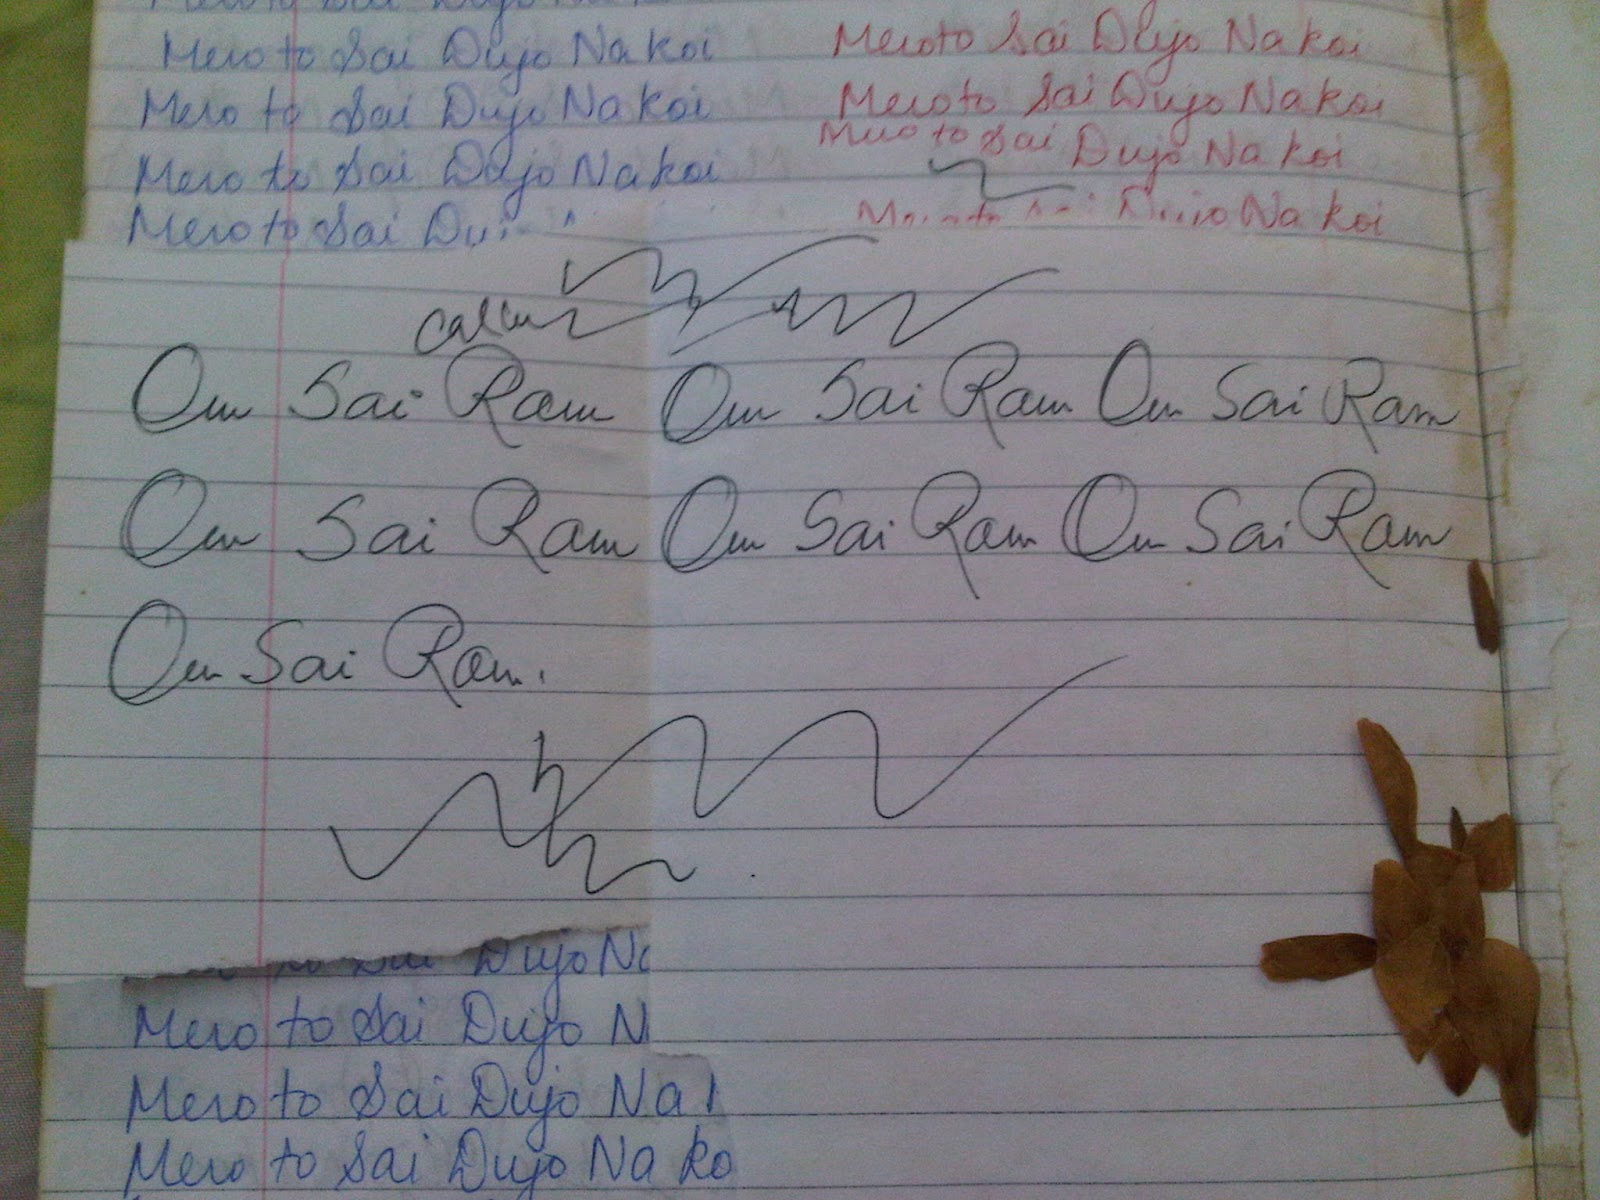 Mero to Sai Dujo Na koi
Mero to Sai Dujo Na koi
Mero to Sai Dujo Na koi
Mero to Sai Dujo Na koi
Mero to Sai Dujo Na koi
Mero to Sai Dujo Na koi
Mero to Sai Du
Na koi
Om Sai Ram Om Sai Ram Om Sai Ram
Om Sai Ram Om Sai Ram Om Sai Ram
Om Sai Ram.
Sai Dujo Na
Mero to Sai Dujo N
Mero to Sai Dujo Na
Mero to Sai Dujo Na ko